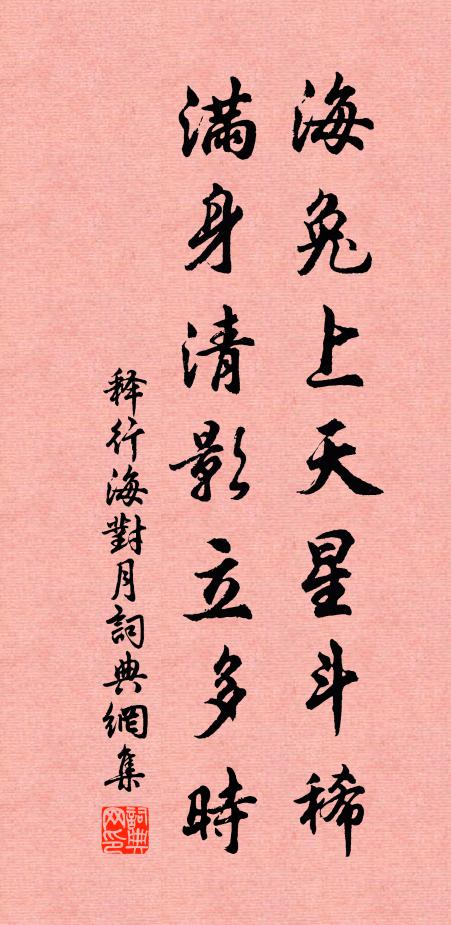 海兔上天星斗稀
满身清影立多時
释行海對月詞典網集
詞典网印